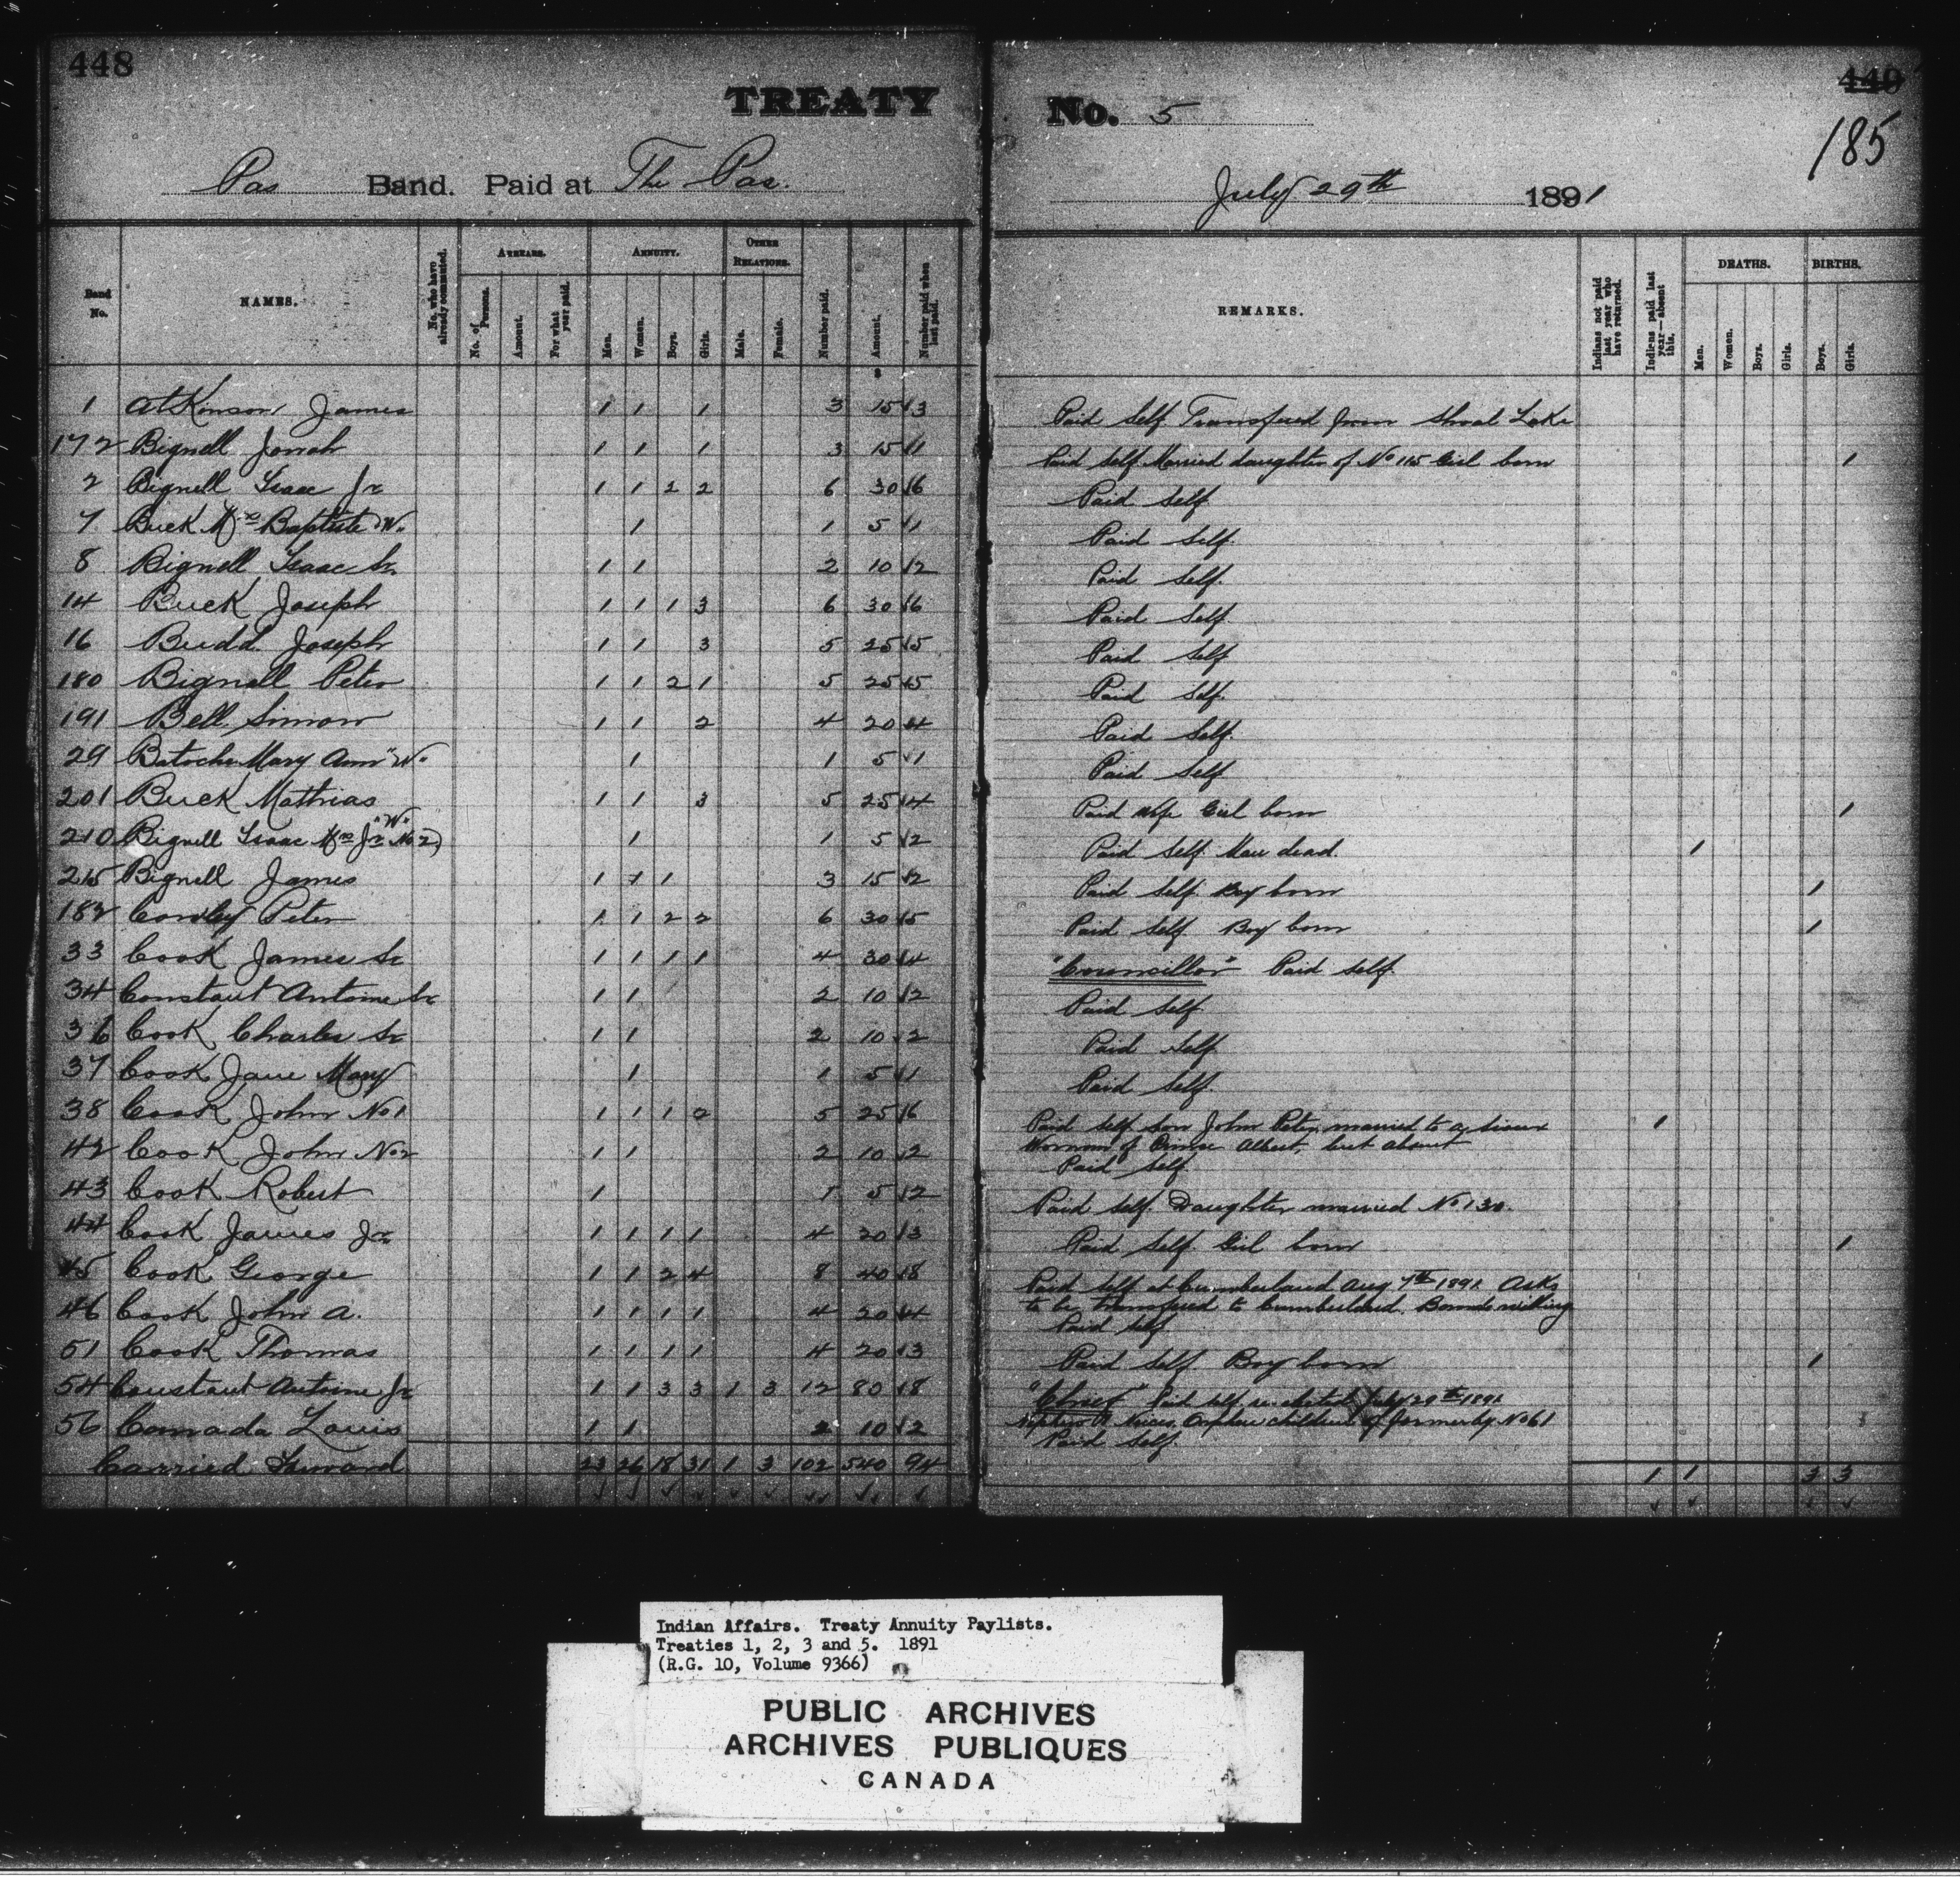 448
TREATY
No. 5
449
185
Pas Band. Paid at The Pas.
July 29th 1891
Band No.
NAMES.
No. who have already commuted.
ARREARS.
No. of Persons.
Amount.
For what year paid.
ANNUITY.
Men.
Women.
Boys.
Girls.
OTHER RELATIONS.
Male.
Female.
Number paid.
Amount.
Number paid when last paid.
REMARKS.
Indians not paid last year who have returned.
Indians paid last year—absent this.
DEATHS.
Men.
Women.
Boys.
Girls.
BIRTHS.
Boys.
Girls.
$
1 Atkinson James 1 1 1 3 15 3 Paid Self Transfered from Shoal Lake
172 Bignell Jonah 1 1 1 3 15 1 Paid Self Married daughter of No 115 Girl born 1
2 Bignell Isaac Jr 1 1 2 2 6 30 6 Paid Self
7 Buck Mrs Baptiste W. 1 1 5 1 Paid Self.
8 Bignell Isaac Sr. 1 1 2 10 2 Paid Self.
14 Buck Joseph 1 1 1 3 6 30 6 Paid Self.
16 Budd Joseph 1 1 3 5 25 5 Paid Self
180 Bignell Peter 1 1 2 1 5 25 5 Paid Self.
191 Bell Simon 1 1 2 4 20 4 Paid Self.
29 Batoche Mary Ann "W" 1 1 5 1 Paid Self
201 Buck Mathias 1 1 3 5 25 4 Paid Wife Girl born 1
210 Bignell Isaac Mrs Jr "W" No 2) 1 1 5 2 Paid Self. Man dead. 1
215 Bignell James 1 1 1 3 15 2 Paid Self Boy born 1
182 Cowley Peter 1 1 2 2 6 30 5 Paid Self Boy born 1
33 Cook James Sr 1 1 1 1 4 30 4 "Councillor" Paid Self.
34 Constant Antoine Sr 1 1 2 10 2 Paid Self
36 Cook Charles Sr 1 1 2 10 2 Paid Self
37 Cook Jane Mary 1 1 5 1 Paid Self.
38 Cook John No 1 1 1 1 2 5 25 6 Paid Self son John Peter married to a Sioux 1
Woman of Prince Albert, but absent
42 Cook John No 2 1 1 2 10 2 Paid Self.
43 Cook Robert 1 1 5 2 Paid Self. Daughter married No 130.
44 Cook James Jr. 1 1 1 1 4 20 3 Paid Self Girl born 1
45 Cook George 1 1 2 4 8 40 8 Paid Self at Cumberland Aug 7th 1891 Asks
to be transfered to Cumberland. Bands willing
46 Cook John A. 1 1 1 1 4 20 4 Paid Self
51 Cook Thomas 1 1 1 1 4 20 3 Paid Self Boy born 1
54 Constant Antoine Jr 1 1 3 3 1 3 12 80 8 "Chief" Paid Self re-elected July 29th 1891
Nephew & Nieces, Orphan children of formerly No 61
56 Canada Louis 1 1 2 10 2 Paid Self.
Carried Forward 23 26 18 31 1 3 102 540 94 1 1 3 3
Indian Affairs. Treaty Annuity Paylists.
Treaties 1, 2, 3 and 5. 1891
(R.G. 10, Volume 9366)
PUBLIC ARCHIVES
ARCHIVES PUBLIQUES
CANADA